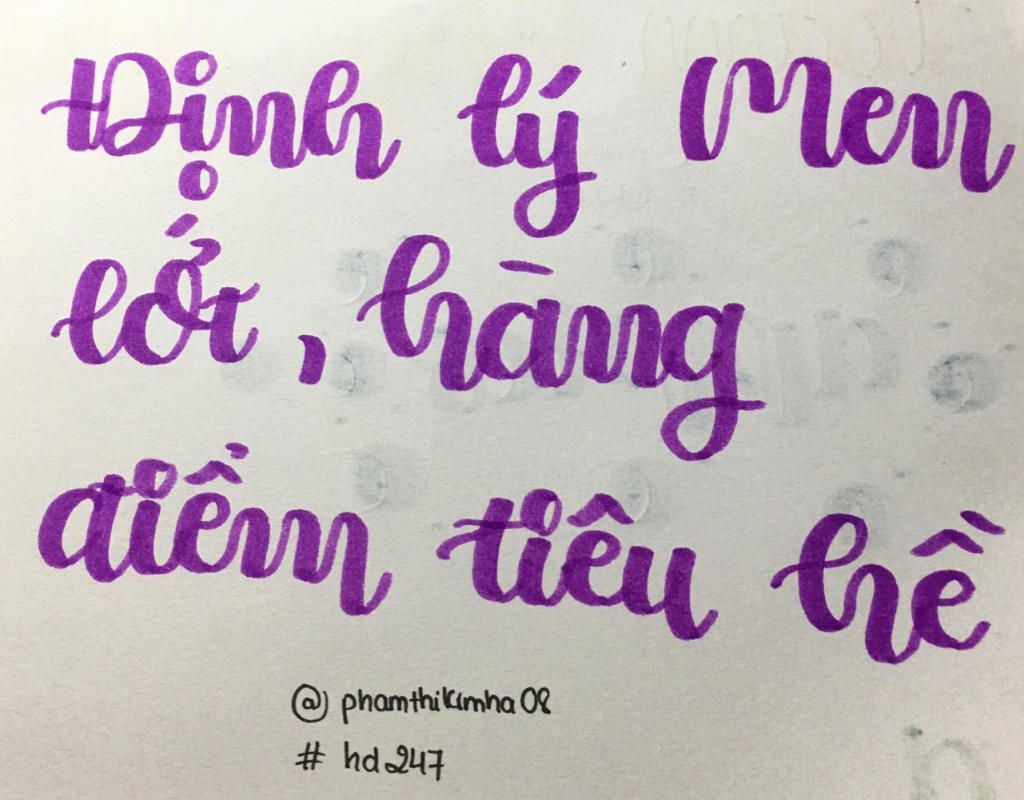 Định lý Men
, hàng
điểm tiêu hề
@ phamthikimha08
# hd247